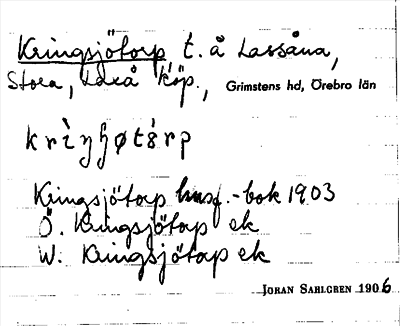 Kringsjötorp t. å Lassåna,
Stora, Laxå köp., Grimstens hd, Örebro län
krìŋɧøtɵ̀rp
Kringsjötorp husf.-bok 1903
Ö. Kringsjötorp ek
W. Kringsjötorp ek
JÖRAN SAHLGREN 1906